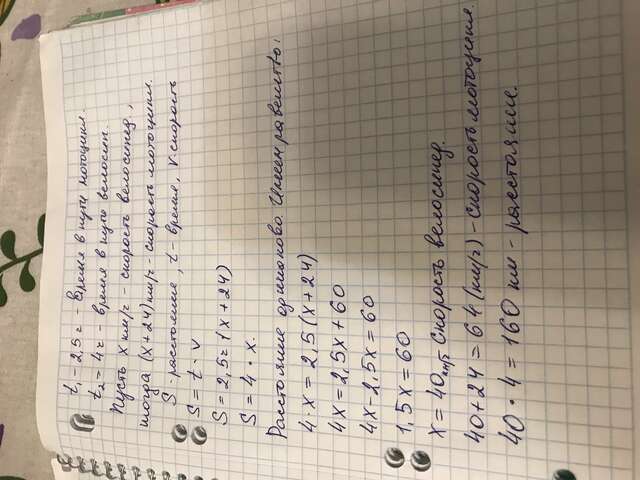 t₁ - 2,5 ч - Время в пути мотоцикл.
t₂ = 4ч - время в пути велосип.
Пусть x км/ч - скорость велосипед.,
тогда (x + 24) км/ч - скорость мотоцикл.
S - расстояние, t - время, v - скорость
S = t · v
S = 2,5 · (x + 24)
S = 4 · x.
Расстояние одинаково. Имеем равенство:
4 · x = 2,5 (x + 24)
4x = 2,5x + 60
4x - 2,5x = 60
1,5x = 60
x = 40 км/ч скорость велосипед.
40 + 24 = 64 (км/ч) - скорость мотоцикл.
40 · 4 = 160 км - расстояние.